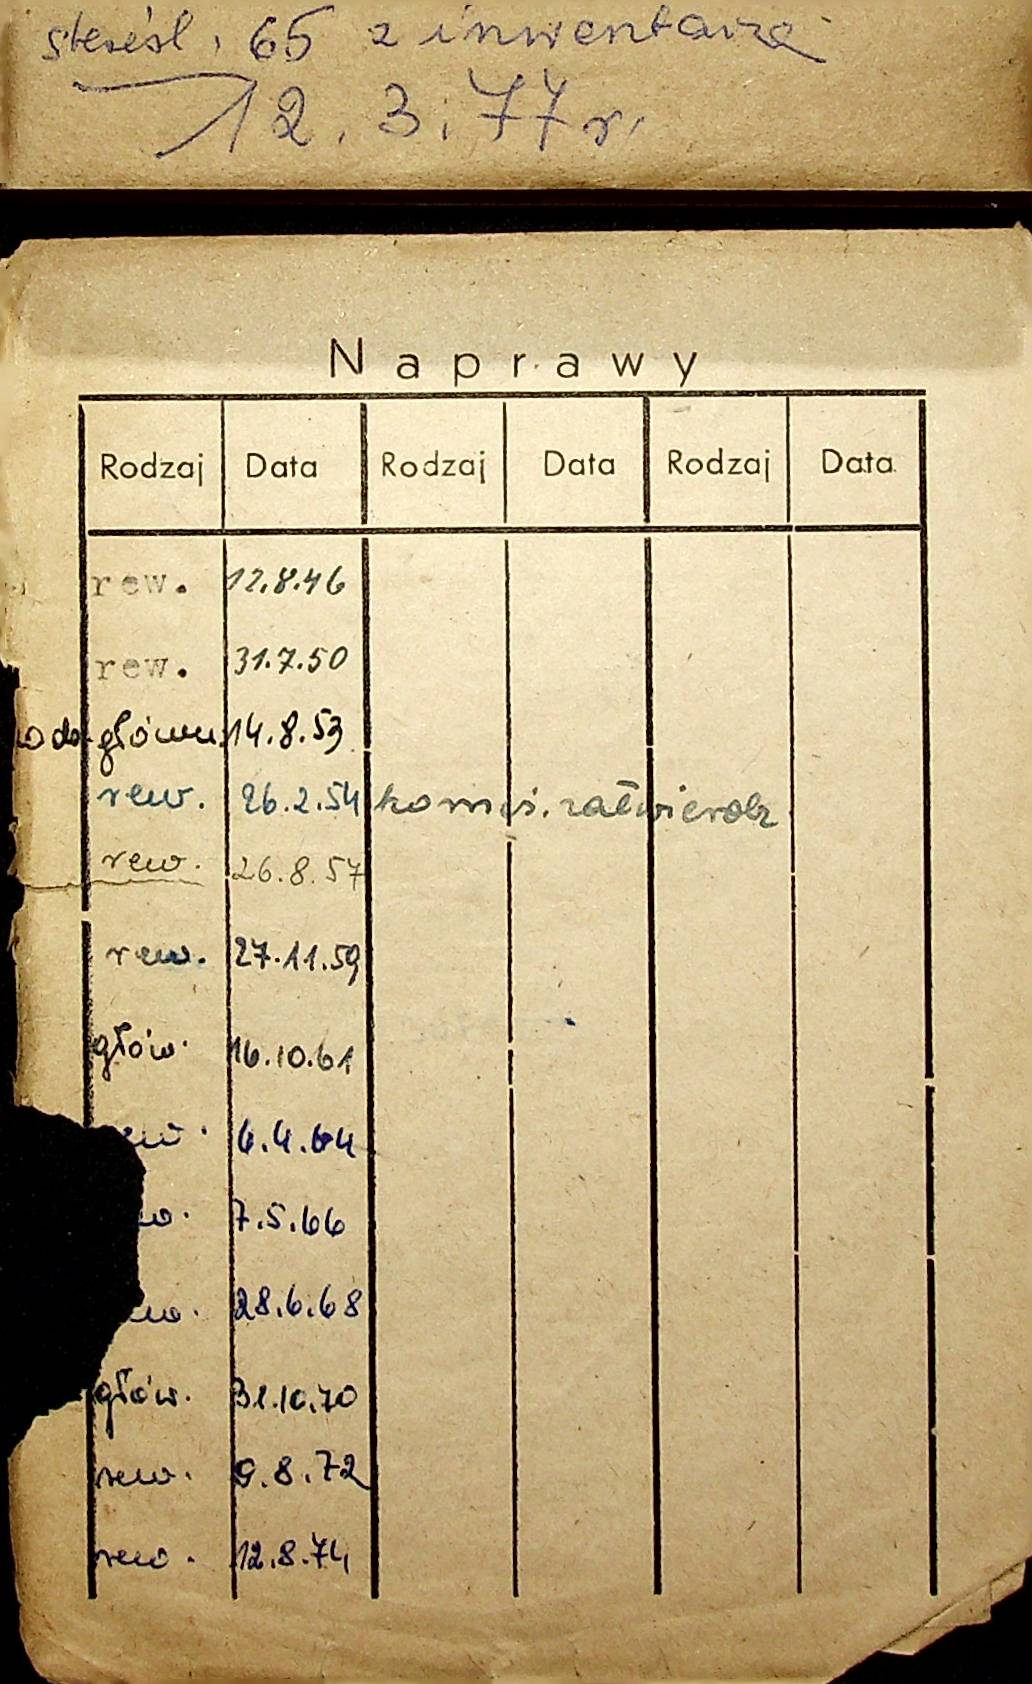 skreśl. 65 z inwentarza
12.3.77 r.
Naprawy
Rodzaj Data Rodzaj Data Rodzaj Data
rew. 12.8.46
rew. 31.7.50
główn 14.8.53
rew. 26.2.54 komis. zatwierdz
rew. 26.8.57
rew. 27.11.59
głów. 16.10.61
6.4.64
7.5.66
28.6.68
głów. 31.10.70
rew. 9.8.72
rew. 12.8.74